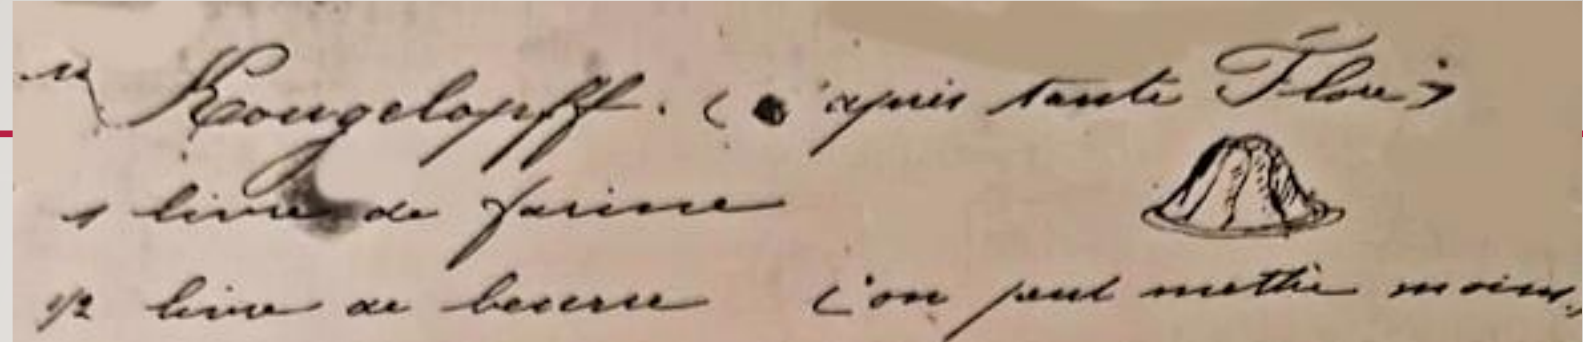 Kougelopff. (d'après tante Flore)
1 livre de farine
1/2 livre de beurre (on peut mettre moins)